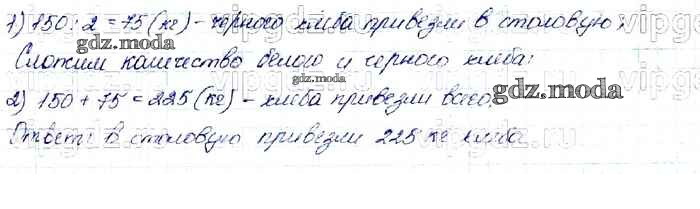 1) 150 : 2 = 75 (кг) - черного хлеба привезли в столовую;
gdz.moda
Сложим количество белого и черного хлеба:
gdz.moda
2) 150 + 75 = 225 (кг) - хлеба привезли всего.
gdz.moda
Ответ: в столовую привезли 225 кг хлеба.